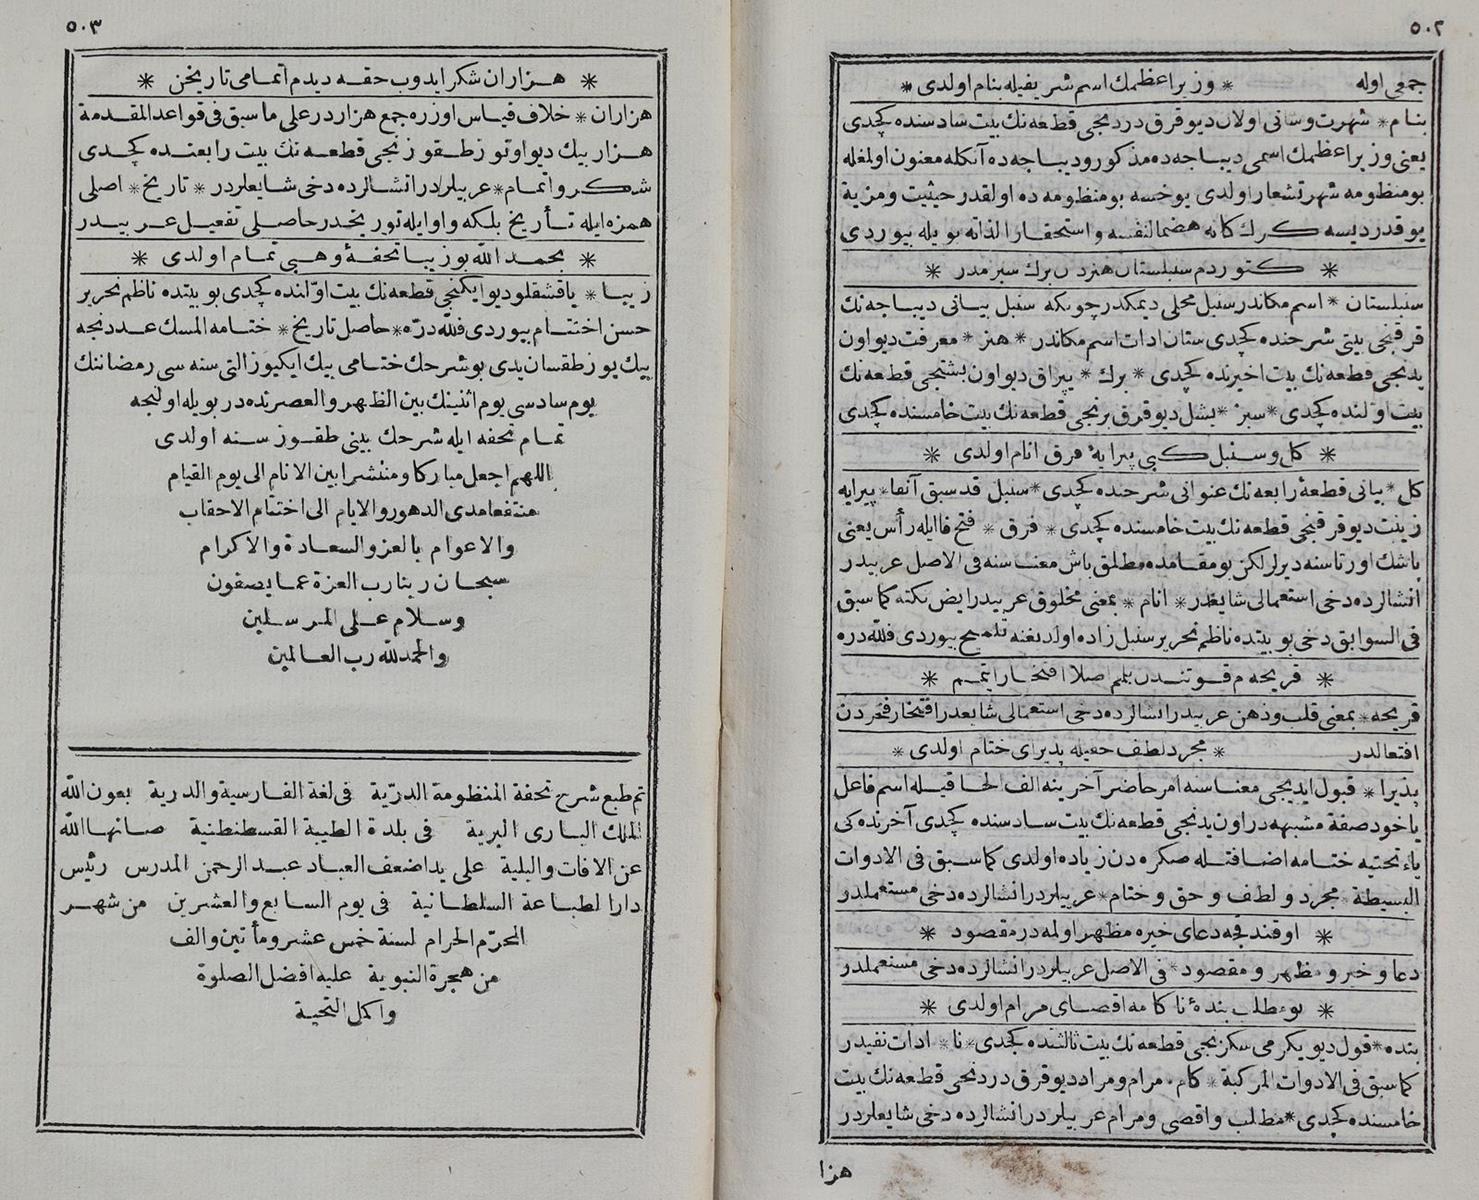 ٥٠٢
جمعی اوله * وزیر اعظمك اسم شریفیله بنام اولدی *
بنام * شهرت وسانی اولان دیو قرق دردنجی قطعه نك بیت سادسنده كچدی
یعنی وزیر اعظمك اسمی دیباجه ده مذكور و دیباجه ده آنكله معنون اولمغله
بو منظومه شهرتشعار اولدی یوخسه بو منظومه ده اولقدر حیثیت ومزیة
یوقدر دیسه كرك كانه هضما لنفسه واستحقارا لذاته بویله بیوردی
* كتوردم سنبلستان هنردن برك سبزمدر *
سنبلستان * اسم مكاندر سنبل محلی دیمكدر چونكه سنبل بیانی دیباجه نك
قرقنجی بیتی شرحنده كچدی ستان ادات اسم مكاندر * هنر * معرفت دیو اون
یدنجی قطعه نك بیت اخیرنده كچدی * برك * یپراق دیو اون بشنجی قطعه نك
بیت اولنده كچدی * سبز * یشل دیو قرق برنجی قطعه نك بیت خامسنده كچدی
* كل وسنبل كبی پیرایهٔ فرق انام اولدی *
كل * بیانی قطعهٔ رابعه نك عنوانی شرحنده كچدی * سنبل قد سبق آنفا * پیرایه
زینت دیو قرقنجی قطعه نك بیت خامسنده كچدی * فرق * فتح فا ایله رأس یعنی
باشك اورتاسنه دیرلر لكن بو مقامده مطلق باش معناسنه فی الاصل عربیدر
انشالرده دخی استعمالی شایعدر * انام * بمعنی مخلوق عربیدر ایض نكته كما سبق
فی السوابق دخی بو بیتده ناظم نحریر سنبل زاده اولدیغنه تلمیح بیوردی فلله دره
* قریحه م قوتندن بلم اصلا افتخار ایتمم *
قریحه * بمعنی قلب وذهن عربیدر انشالرده دخی استعمالی شایعدر افتخار فخردن
افتعالدر * مجرد لطف حقیله پذیرای ختام اولدی *
پذیرا * قبول ایدیجی معناسنه امر حاضر آخرینه الف الحاقیله اسم فاعل
یاخود صفة مشبهه در اون یدنجی قطعه نك بیت سادسنده كچدی آخرنده كی
یاء تحتیه ختامه اضافتله صكره دن زیاده اولدی كما سبق فی الادوات
البسیطة * مجرد ولطف وحق وختام * عربیلردر انشالرده دخی مستعملدر
* اوقندقجه دعای خیره مظهر اولمه در مقصود *
دعا وخیر ومظهر ومقصود * فی الاصل عربیلردر انشالرده دخی مستعملدر
* بو مطلب بندهٔ ناكامه اقصای مرام اولدی *
بنده * قول دیو یكرمی سكزنجی قطعه نك بیت ثالثنده كچدی * نا * ادات نفیدر
كما سبق فی الادوات المركبة * كام * مرام ومراد دیو قرق دردنجی قطعه نك بیت
خامسنده كچدی * مطلب واقصی ومرام عربیلردر انشالرده دخی شایعلردر
هزا
٥٠٣
* هزاران شكر ایدوب حقه دیدم اتمامی تاریخن *
هزاران * خلاف قیاس اوزره جمع هزاردر علی ما سبق فی قواعد المقدمة
هزار بیك دیو اوتوز طقوزنجی قطعه نك بیت رابعنده كچدی
شكر واتمام * عربیلردر انشالرده دخی شایعلردر * تاریخ * اصلی
همزه ایله تأریخ بلكه واو ایله توریخدر حاصلی تفعیل عربیدر
* بحمد الله بو زیبا تحفهٔ وهبی تمام اولدی *
زیبا * یاقشقلو دیو ایكنجی قطعه نك بیت اولنده كچدی بو بیتده ناظم نحریر
حسن اختتام بیوردی فلله دره * حاصل تاریخ * ختامه المسك عددنجه
بیك یوز طقسان یدی بو شرحك ختامی بیك ایكیوز التی سنه سی رمضاننك
یوم سادسی یوم اثنینك بین الظهر والعصرنده در بویله اولنجه
تمام تحفه ایله شرحك بینی طقوز سنه اولدی
اللهم اجعل مباركا ومنتشرا بین الانام الی یوم القیام
منتفعا مدی الدهور والایام الی اختتام الاحقاب
والاعوام بالعز والسعادة والاكرام
سبحان ربنا رب العزة عما یصفون
وسلام علی المرسلین
والحمد لله رب العالمین
تم طبع شرح تحفة المنظومة الدریة فی لغة الفارسیة والدریة بعون الله
الملك الباری البریة فی بلدة الطیبة القسطنطنیة صانها الله
عن الافات والبلیة علی ید اضعف العباد عبد الرحمن المدرس رئیس
دار الطباعة السلطانیة فی یوم السابع والعشرین من شهر
المحرم الحرام لسنة خمس عشر ومأتین والف
من هجرة النبویة علیه افضل الصلوة
واكمل التحیة